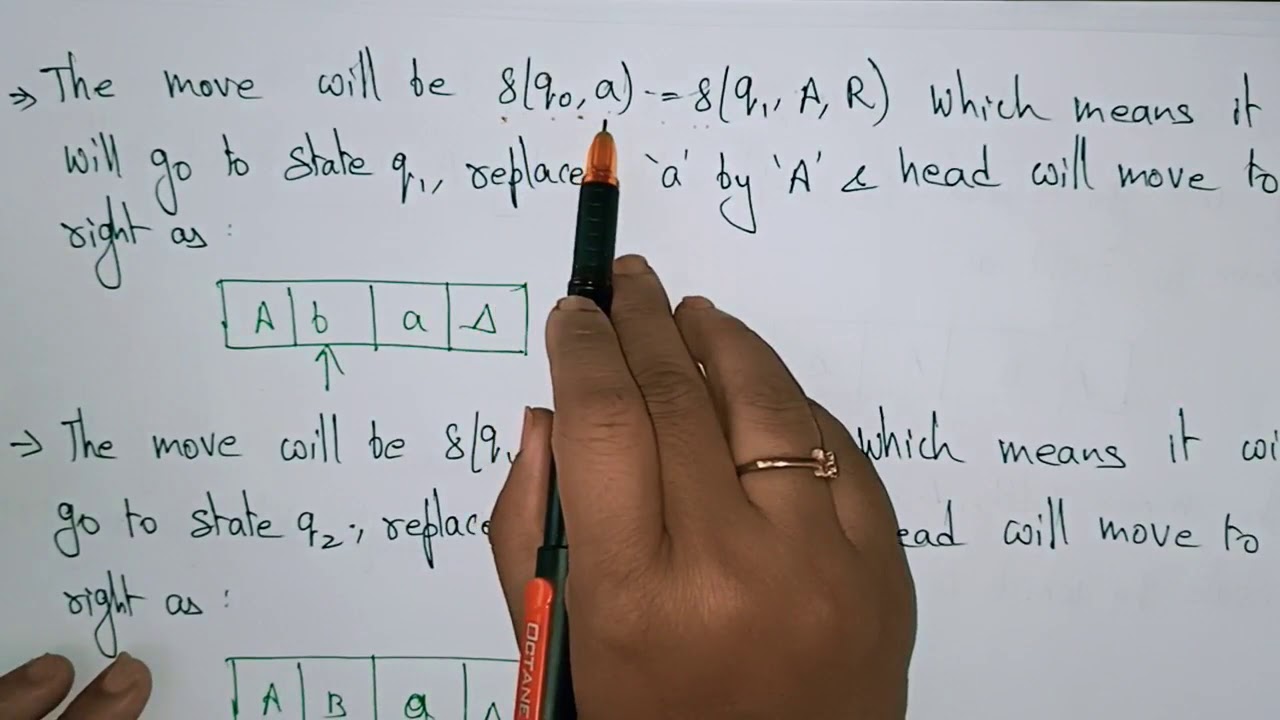 ⇒ The move will be δ(q₀, a) = δ(q₁, A, R) which means it
will go to state q₁, replace 'a' by 'A' & head will move to
right as :
A b a Δ
↑
→ The move will be δ(q which means it
go to state q₂, replace will move to
right as :
A B a
OCTANE